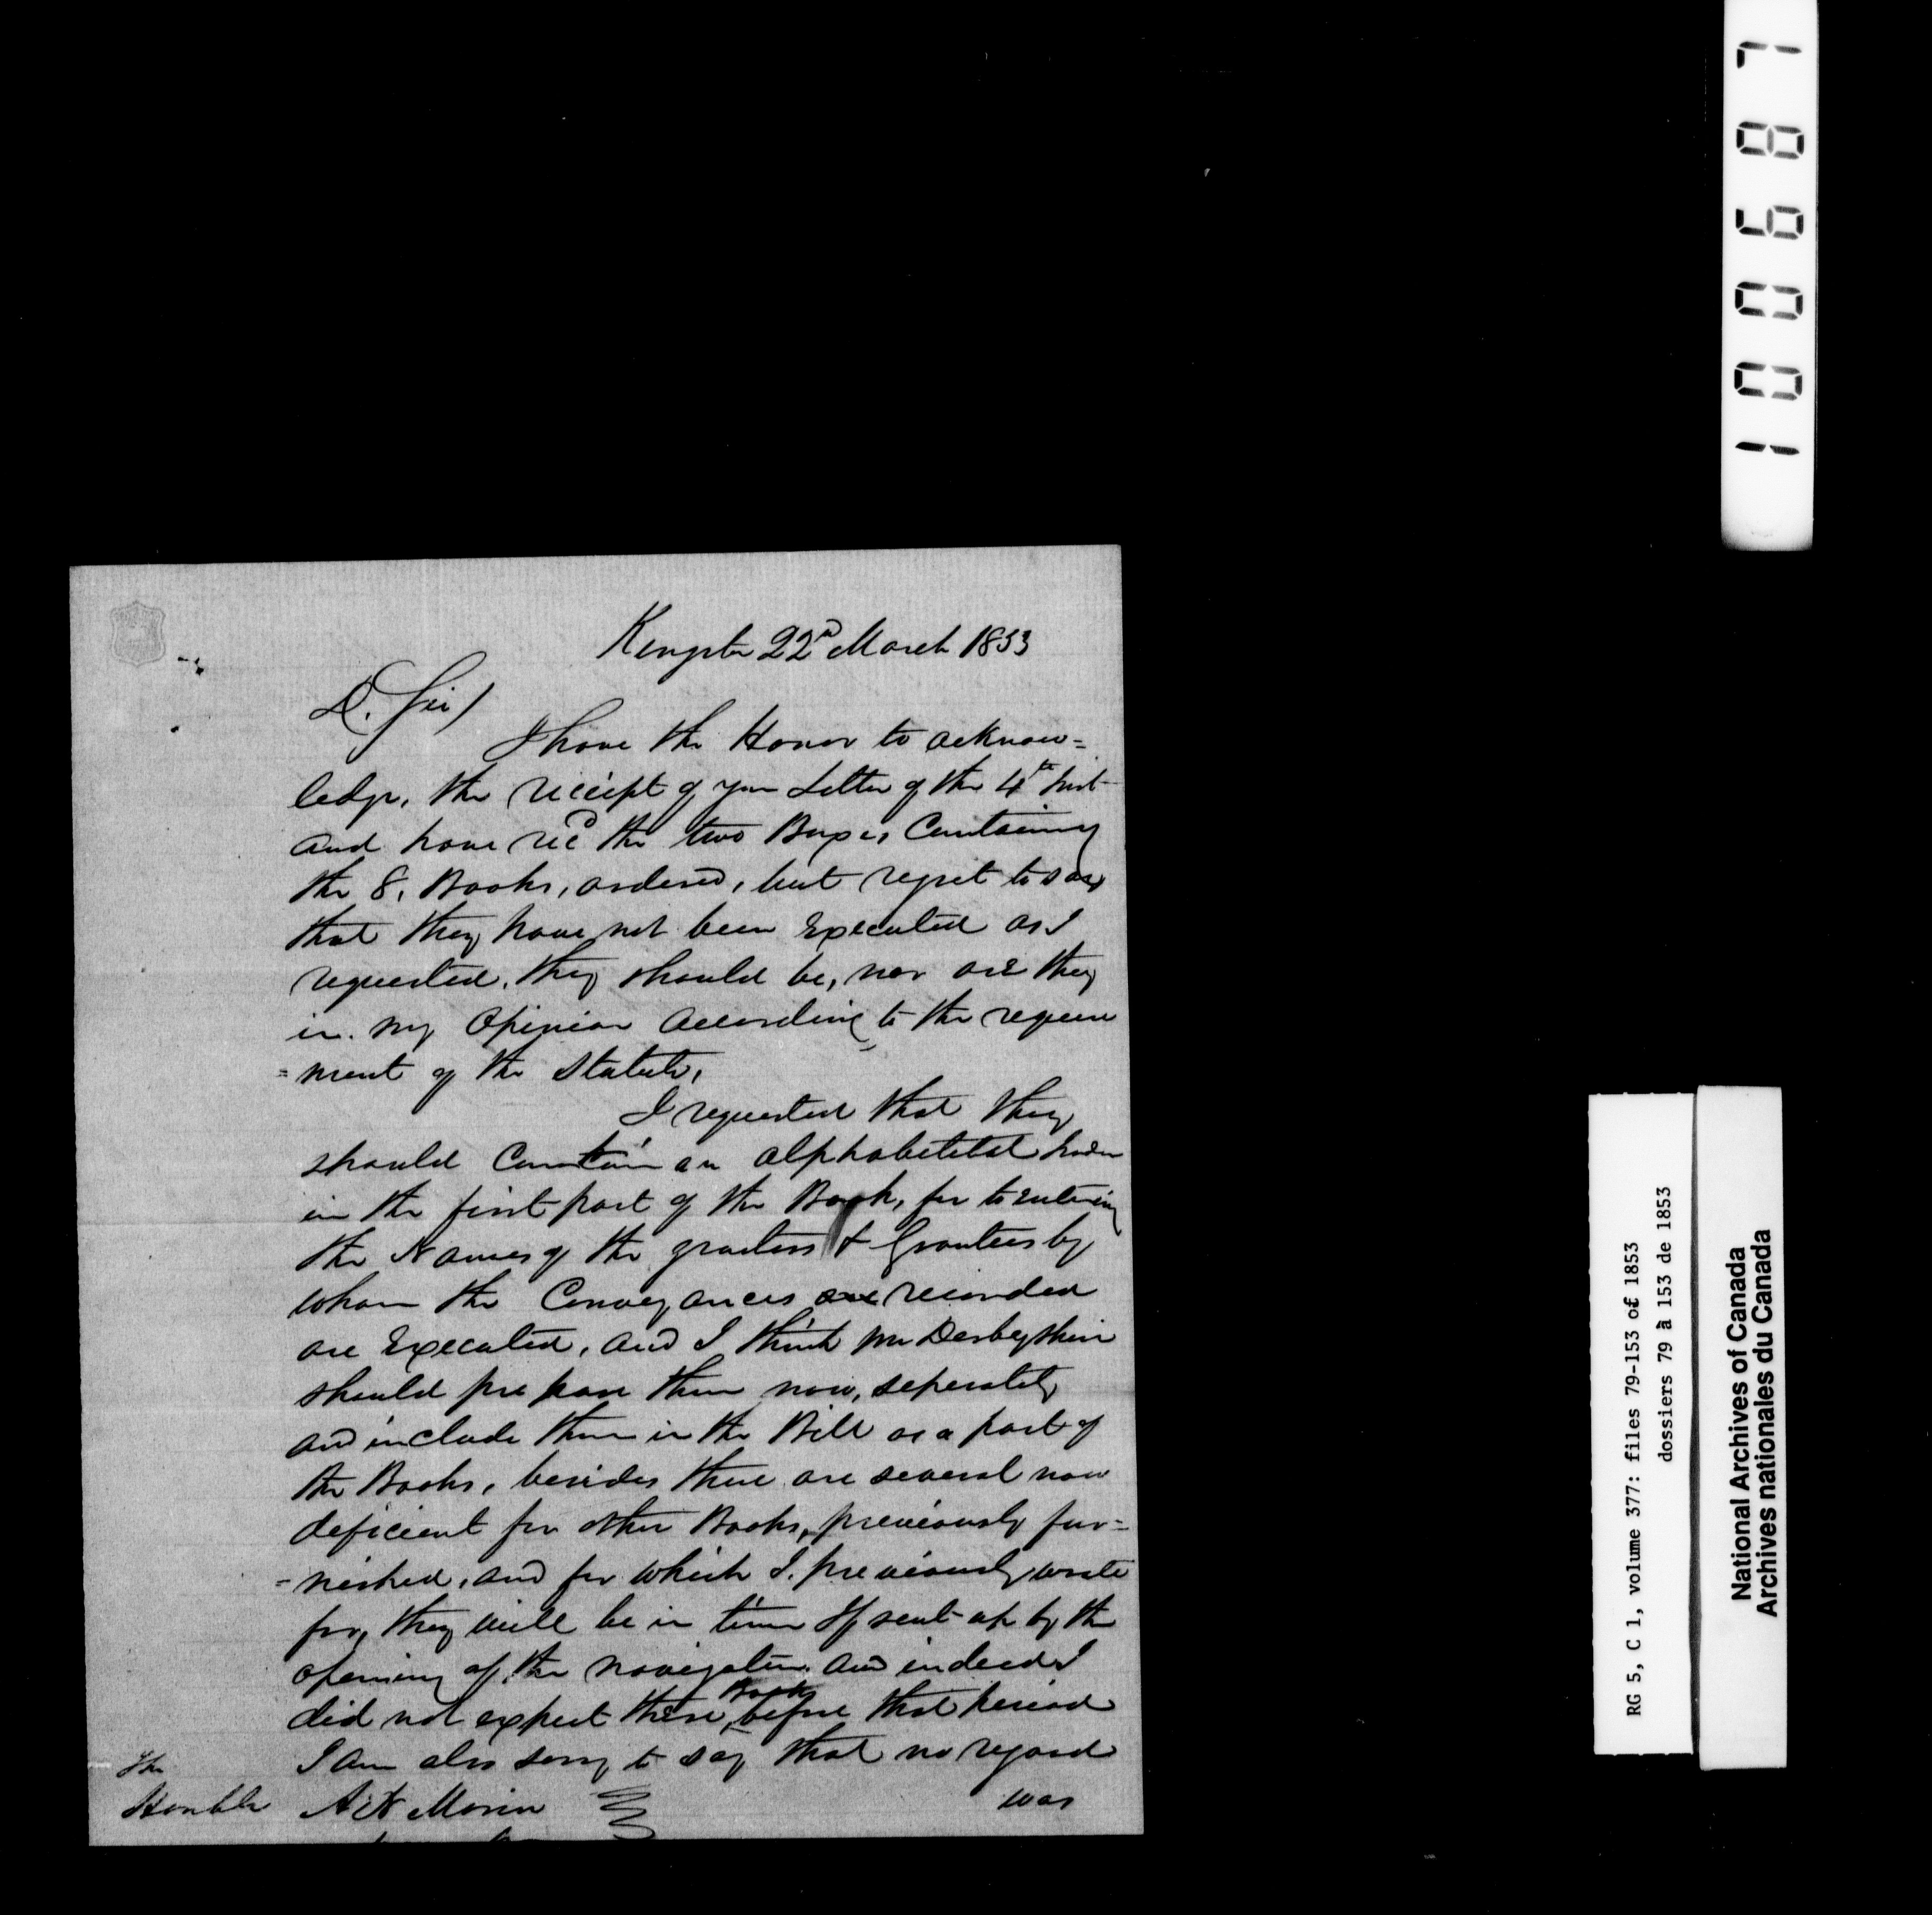 Kingston 22d March 1853
D. Sir/
I have the Honor to acknow=
ledge, the receipt of your Letter of the 4th Inst
and have recd the two Boxes Containing
the 8, Books, ordered, but regret to say
that they have not been Executed as I
requested, they should be, nor are they
in my Opinion according to the require
=ment of the Statute,
I requested that they
should Contain an alphabetital Index
in the first part of the Book, for to Entering
the Names of the grantors & Grantees by
whom the Conveyances are recorded
are Executed, and I think Mr Derbyshire
should prepare them now, seperately
and include them in the Bill as a part of
the Books, besides there are several now
deficient for other Books, previously fur=
=nished, and for which I. previously wrote
for, they will be in time If sent up by the
opening of the navigation and indeed I
did not expect these Books before that period
I am also sorry to say that no regard
was
The
Honble A N Morin
1 0 0 6 8 7
RG 5, C 1, volume 377: files 79-153 of 1853
dossiers 79 à 153 de 1853
National Archives of Canada
Archives nationales du Canada